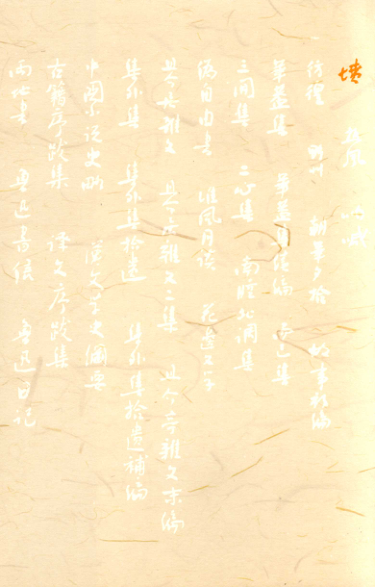 墳 熱風 吶喊
彷徨 野草 朝華夕拾 故事新編
華蓋集 華蓋集續編 而已集
三閒集 二心集 南腔北調集
偽自由書 准風月談 花邊文学
且介亭雜文 且介亭雜文二集 且介亭雜文末編
集外集 集外集拾遺 集外集拾遺補編
中國小说史略 漢文学史綱要
古籍序跋集 譯文序跋集
兩地書 魯迅書信 魯迅日記